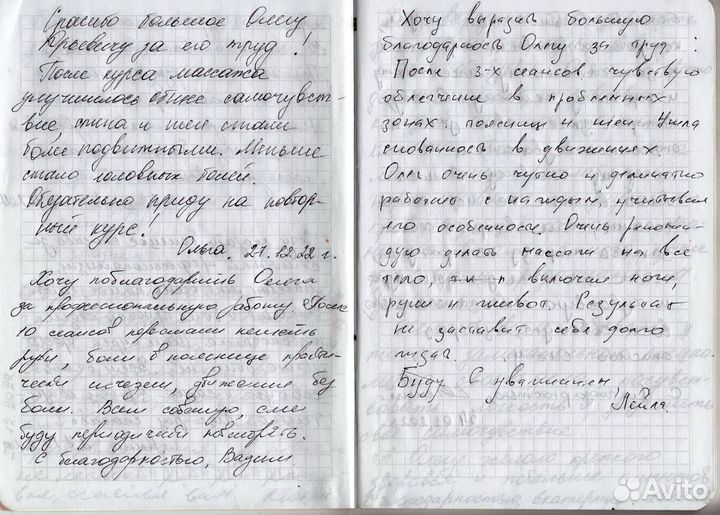 Спасибо большое Олегу
Юрьевичу за его труд!
После курса массажа
улучшилось общее самочувст-
вие, спина и шея стали
более подвижными. Меньше
стало головных болей.
Обязательно приду на повтор-
ный курс!
Ольга. 27.12.22 г.
Хочу поблагодарить Олега
за профессиональную работу. После
10 сеансов перестали неметь
руки, боли в пояснице практи-
чески исчезли, движения без
боли. Всем советую, сам
буду периодически повторять.
С благодарностью, Вадим
Хочу выразить большую
благодарность Олегу за труд.
После 3-х сеансов чувствую
облегчение в проблемных
зонах. поясницы и шеи. Ушла
скованность в движениях.
Олег очень чутко и деликатно
работает с каждым, учитывая
его особенности. Очень рекомен-
дую делать массаж на все
тело, включая ноги,
руки и живот. Результат
не заставит себя долго
ждать.
Буду С уважением,
Лейла.
Avito